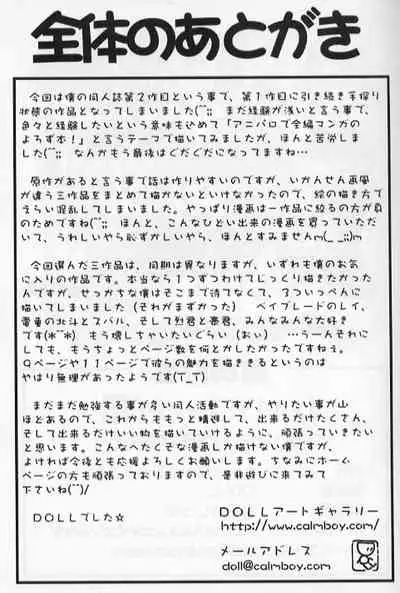 全体のあとがき
今回は僕の同人誌第２作目という事で、第１作目に引き続き手探り
状態の作品となってしまいました(^^;; まだ経験が浅いと言う事で、
色々と経験したいという意味も込めて「アニパロで全編マンガの
よろず本！」と言うテーマで描いてみましたが、ほんと苦労しま
した(^^;; なんかもう最後はぐだぐだになってますね…
原作があると言う事で話は作りやすいのですが、いかんせん画風
が違う三作品をまとめて描かないといけなかったので、絵の描き方で
えらい混乱してしまいました。やっぱり漫画は一作品に絞るの方が身
のためですね(^^;; ほんと、こんなひどい出来の漫画を買っていただ
いて、うれしいやら恥ずかしいやら、ほんとすみませんm(_ _;;)m
今回選んだ三作品は、同期は異なりますが、いずれも僕のお気
に入りの作品です。本当なら１つずつわけてじっくり描きたかった
んですが、せっかちな僕はそこまで待てなくて、３ついっぺんに
描いてしまいました（それがまずかった） ベイブレードのレイ、
電童の北斗とスバル、そして烈君と豪君、みんなみんな大好き
です(*^^*) もう壊しちゃいたいぐらい（おい） …うーんそれに
しても、もうちょっとページ数を何とかしたかったですねぇ。
９ページや１１ページで彼らの魅力を描ききるというのは
やはり無理があったようです(T_T)
まだまだ勉強する事が多い同人活動ですが、やりたい事が山
ほとあるので、これからももっと精進して、出来るだけたくさん、
そして出来るだけいい物を描いていけるように、頑張っていきたい
と思います。こんなへたくそな漫画しか描けない僕ですが、
よければ今後とも応援よろしくお願いします。ちなみにホーム
ページの方も頑張っておりますので、是非遊びに来てみて
下さいね(^^)/
ＤＯＬＬでした☆
ＤＯＬＬアートギャラリー
http://www.calmboy.com/
メールアドレス
doll@calmboy.com